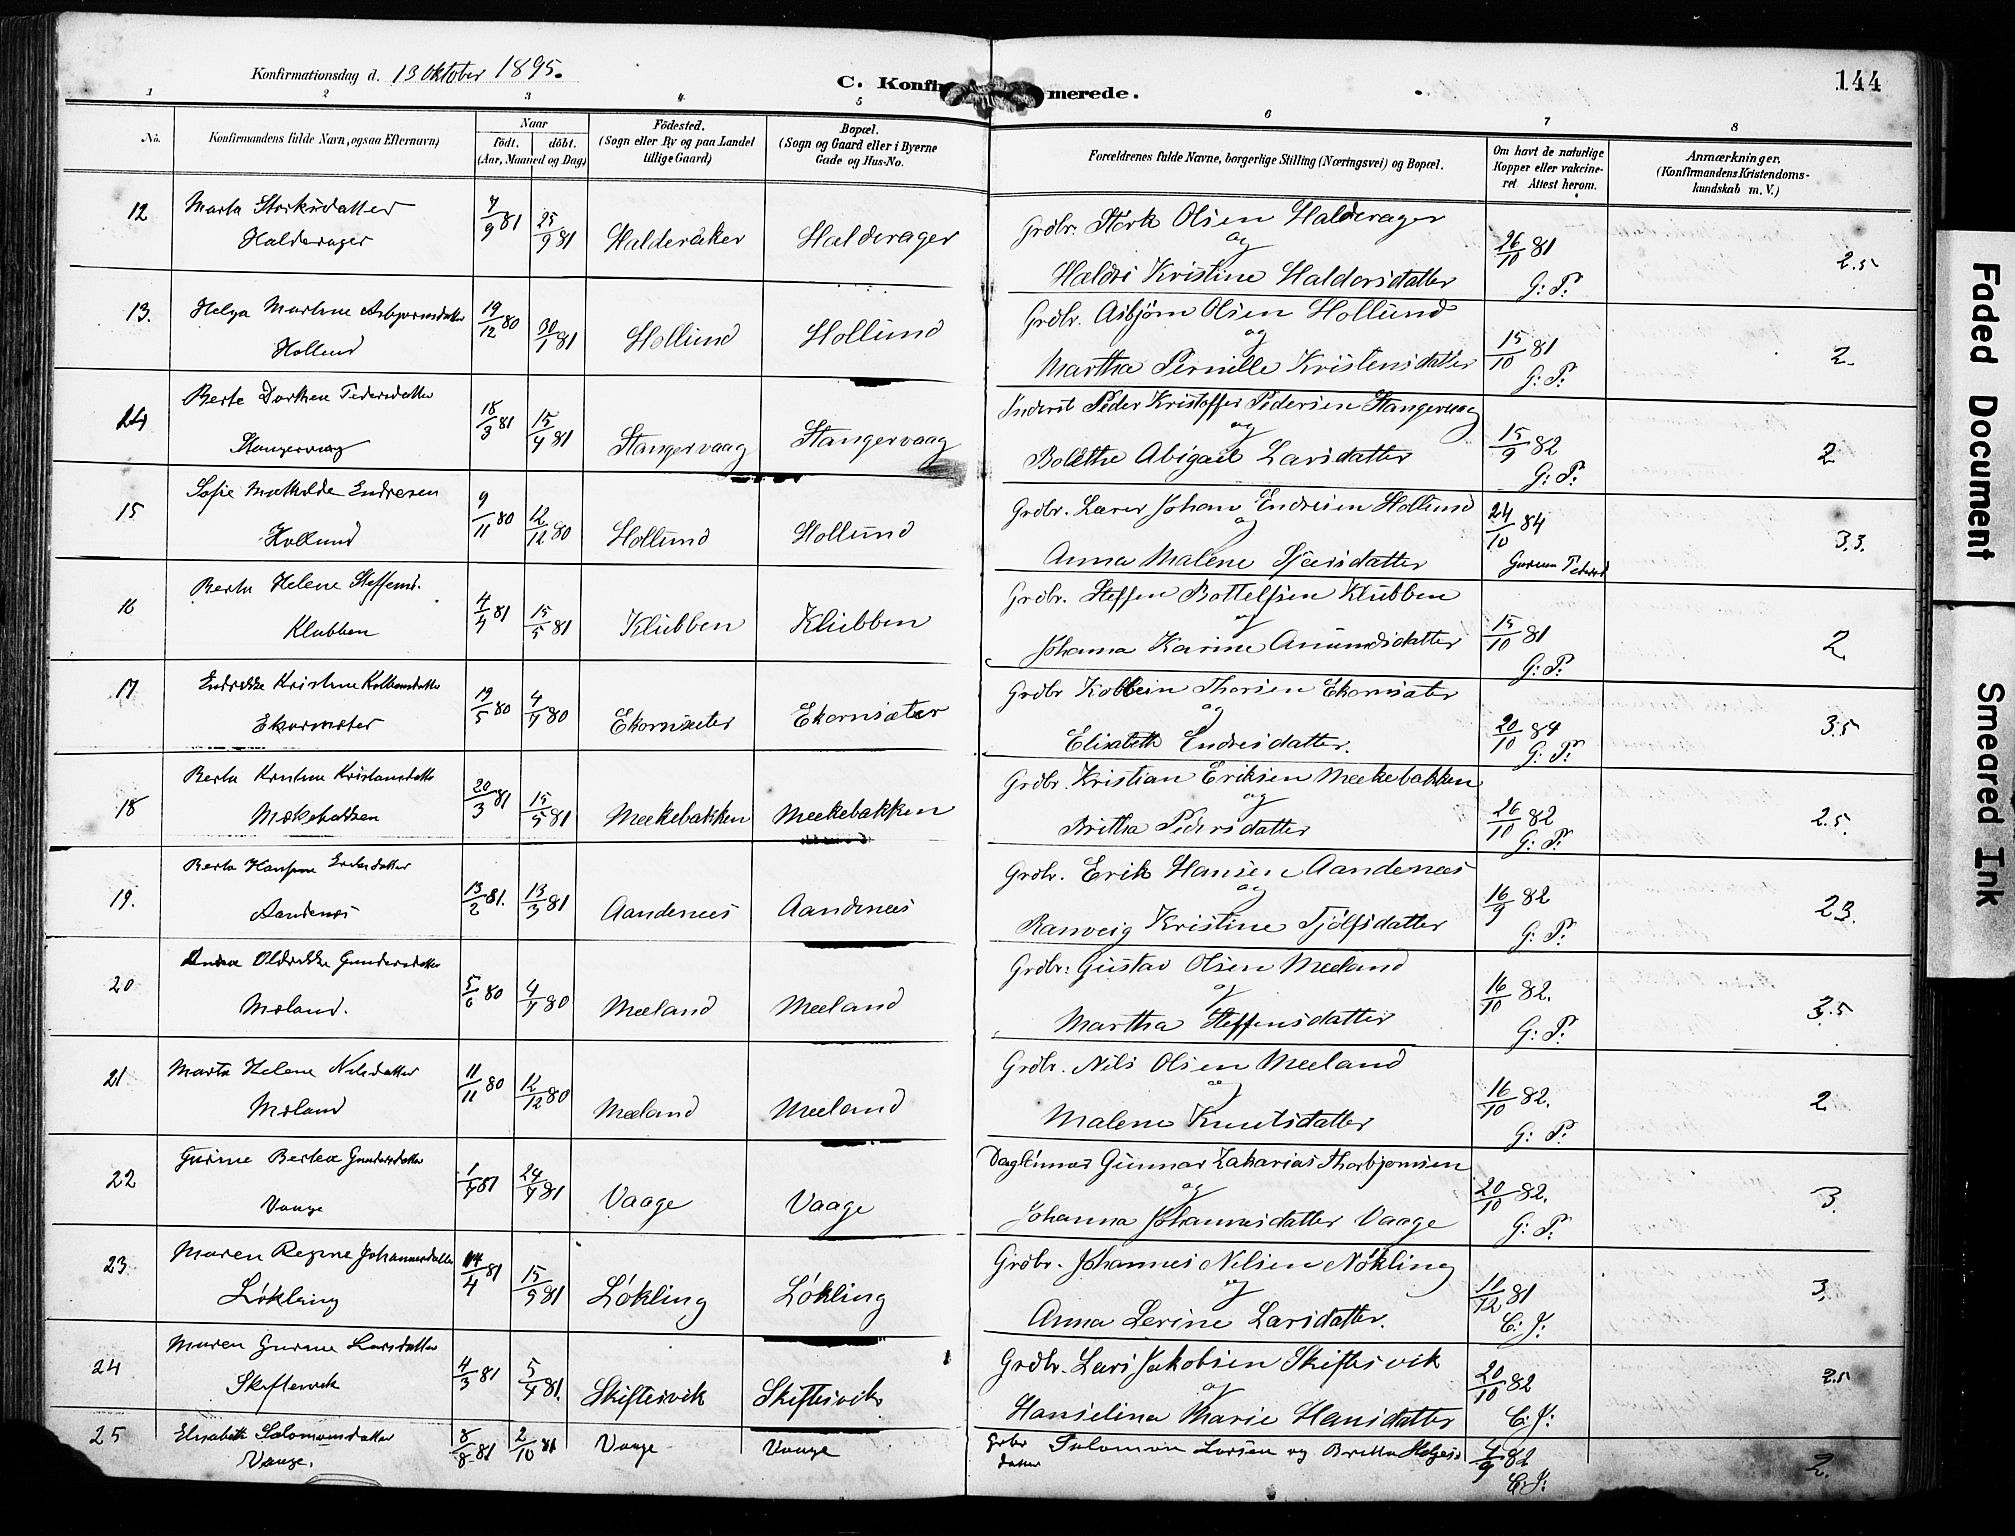 Konfirmationsdag d. 13 Oktober 1895.
C. Konfirmerede.
144
1 2 3 4 5 6 7 8
No.
Konfirmandens fulde Navn, ogsaa Efternavn)
Naar
födt. döbt.
(Aar, Maaned og Dag)
Födested.
(Sogn eller By og paa Landet
tillige Gaard)
Bopæl.
(Sogn og Gaard eller i Byerne
Gade og Hus-No.
Forældrenes fulde Navne, borgerlige Stilling (Næringsvei) og Bopæl.
Om havt de naturlige
Kopper eller vakcine-
ret Attest herom.
Anmærkninger.
(Konfirmandens Kristendoms-
kundskab m. V.)
12 Marta Störksdatter 7/9 81 25/9 81 Halderåker Halderager Grdbr. Störk Olsen Halderager 26/10 81 2.5
Halderager og
Kristine Haldorsdatter G: P:
13. Helga Martine Asbjørnsdatter 19/12 80 30/1 81 Hollund Hollund Grdbr. Asbjörn Olsen Hollund 15/10 81 2.
Hollund og
Martha Pernille Kristensdatter G: P:
14 Berte Dorthea Pedersdatter 18/3 81 15/4 81 Stangervaag Stangervaag Inderst Peder Kristoffer Pedersen Stangervaag 15/9 82 2
Stangervaag og
Bolethe Abigael Larsdatter G: P:
15 Sofie Mathilde Endresen 9/11 80 12/12 80 Hollund Hollund Grdbr. Lærer Johan Endresen Hollund 24/10 84 3.3.
Hollund og
Anna Malene Sjursdatter
16 Berta Helene Steffensd. 4/4 81 15/5 81 Klubben Klubben Grdbr. Steffen Bottelfsen Klubben 15/10 81 2
Klubben og
Johanna Karine Amundsdatter G: P:
17 Endrikke Kristine Kolbeinsdatter 19/5 80 4/7 80 Ekornsæter Ekornsæter Grdbr Kolbein Thorsen Ekornsæter 20/10 84 3.5
Ekornsæter og
Elisabeth Endresdatter. G: P:
18 Berta Kristine Kristiansdatter 20/3 81 15/5 81 Mækebakken Mækebakken Grdbr. Kristian Eriksen Mækebakken 26/10 82 2.5.
Mækebakken og
Britha Pedersdatter G: P:
19. Berta Hansine Eriksdatter 13/2 81. 13/3 81 Aandenæs Aandenæs Grdbr. Erik Hansen Aandenæs 16/9 82 2.3.
Aandenæs og
Ranveig Kristine Tjölfsdatter G: P:
20 Anna Oldrikke 5/6 80 4/7 80 Mæland Mæland Grdbr: Gustav Olsen Mæland 16/10 82. 3.5
Mæland. og
Martha Steffensdatter G: P:
21 Marta Helene Nilsdatter 11/11 80 12/12 80 Mæland Mæland Grdbr. Nils Olsen Mæland 16/10 82. 2
Mæland og
Malene Knutsdatter G: P:
22 Gurine Bertea Gunnarsdatter 1/4 81 24/4 81 Vaage Vaage Daglönnar Gunnar Zakarias Thorbjornsen 20/10 82. 3.
Vaage og
Johanna Johannesdatter Vaage G: P:
23 Maren Regine Johannesdatter 14/4 81 15/5 81 Lökling Lökling Grdbr. Johannes Nilsen Nökling 11/12 81 3.
Løkling og
Anna Serine Larsdatter. C: J:
24 Maren Gurine Larsdatter 4/3 81 5/4 81. Skiftesvik Skiftesvik Grdbr. Lars Jakobsen Skiftesvik 20/10 82 2.5
Skiftesvik og
Hanselina Marie Hansdatter C: J:
25 Elisabeth Salomonsdatter 8/8 81 2/10 81 Vaage Vaage Grbr Salomon Larsen og Britta Helges- 4/9 82 2.
Vaage. datter C: J:
Faded Document
Smeared Ink